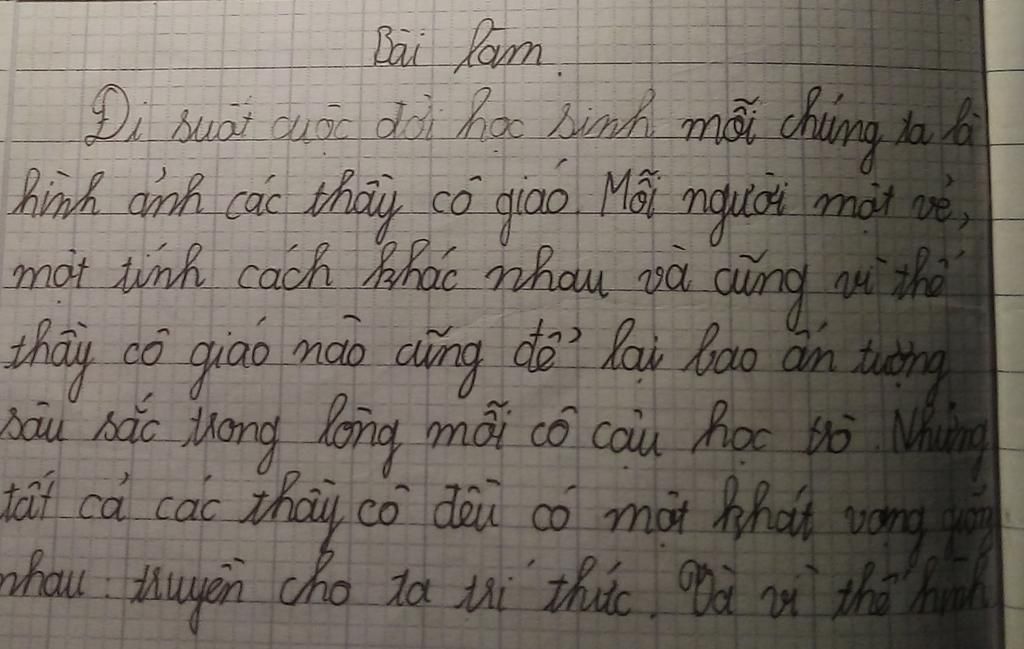 Bài làm.
Đi suốt cuộc đời học sinh mỗi chúng ta là
hình ảnh các thầy cô giáo. Mỗi người một vẻ,
một tính cách khác nhau và cũng vì thế
thầy cô giáo nào cũng để lại bao ấn tượng
sâu sắc trong lòng mỗi cô cậu học trò. Nhưng
tất cả các thầy cô đều có một khát vọng giống
nhau: truyền cho ta tri thức. Và vì thế hình